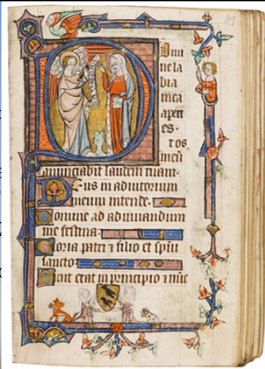 mi
ne la
bia
mea
aperi
es .
t os
meū
annunciabit laudem tuam .
eus in adiutorium
meum intende .
omine ad adiuuandum
me festina .
loria patri & filio et spiri
sancto
icut erat in principio & nūc